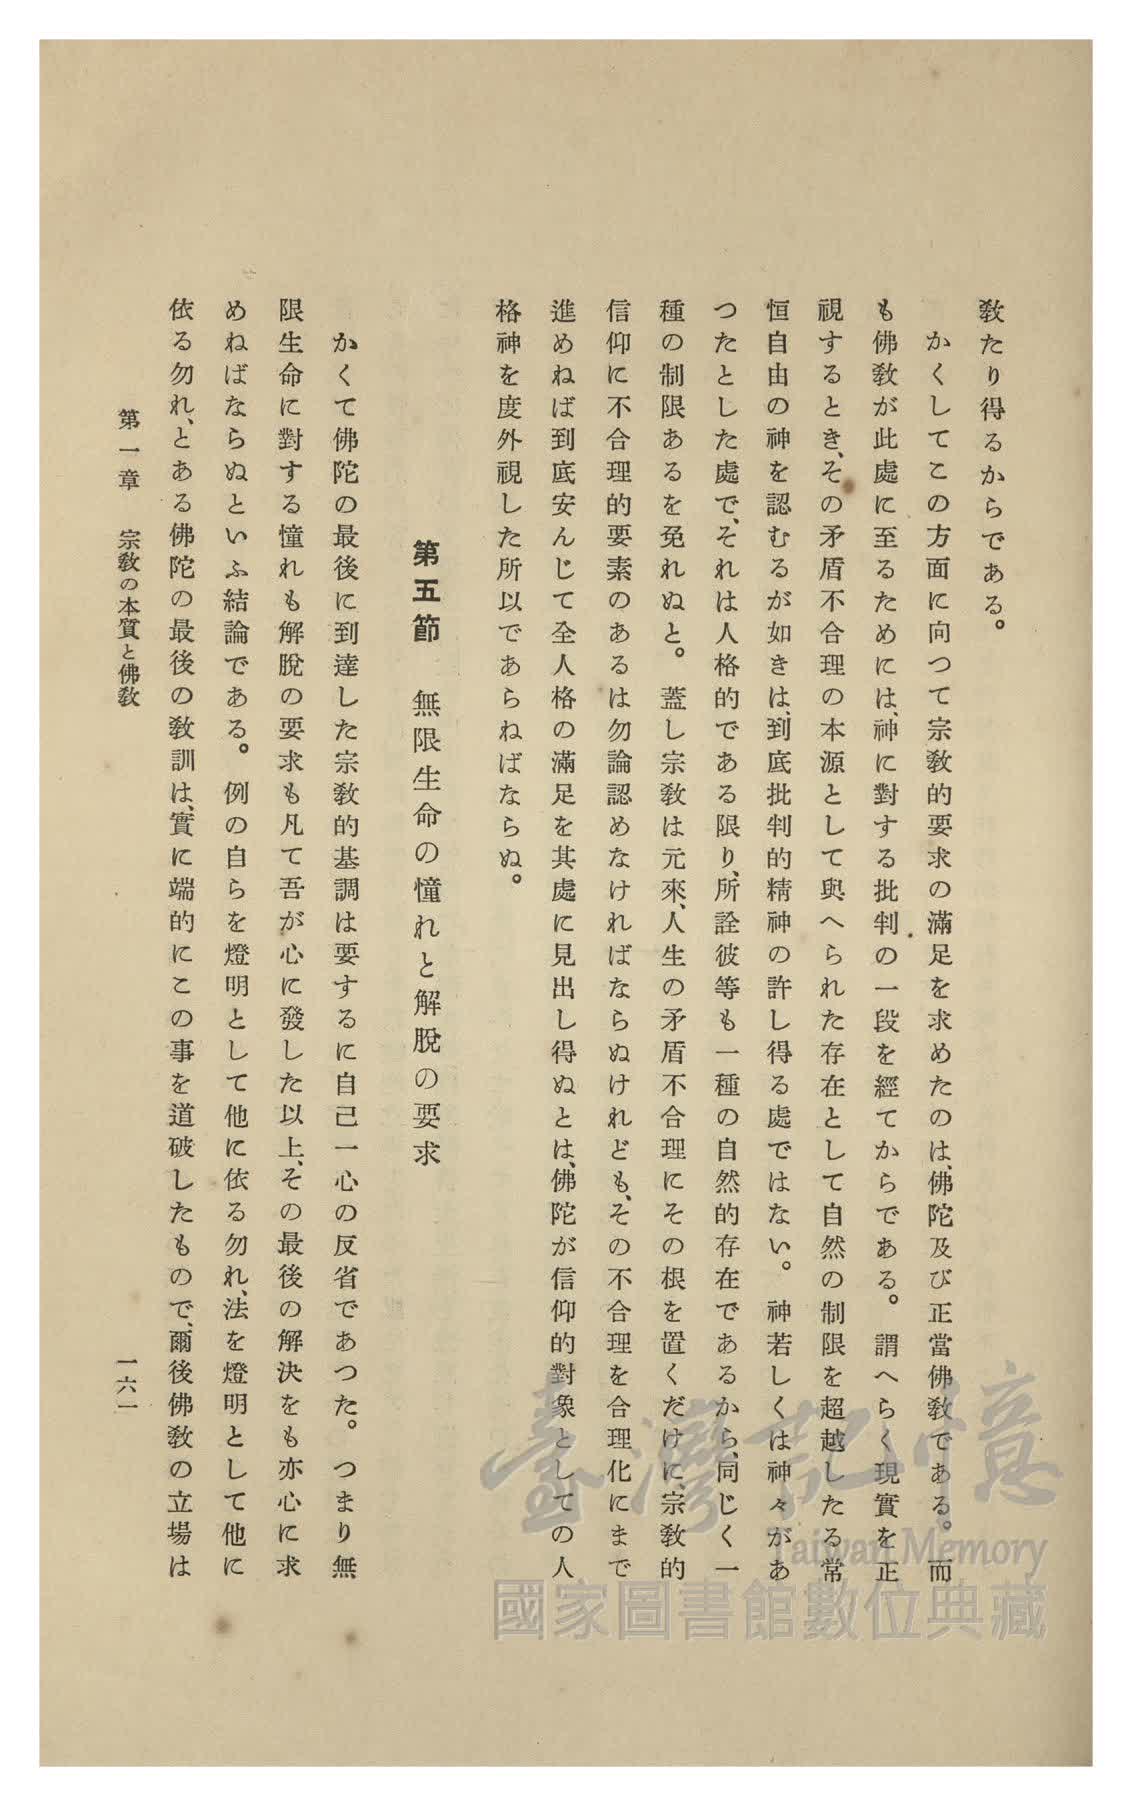 教たり得るからである。
かくしてこの方面に向つて宗教的要求の滿足を求めたのは、佛陀及び正當佛教である。而
も佛教が此處に至るためには、神に對する批判の一段を經てからである。謂へらく現實を正
視するとき、その矛盾不合理の本源として與へられた存在として自然の制限を超越したる常
恒自由の神を認むるが如きは、到底批判的精神の許し得る處ではない。神若しくは神々があ
つたとした處で、それは人格的である限り、所詮彼等も一種の自然的存在であるから、同じく一
種の制限あるを免れぬと。蓋し宗教は元來、人生の矛盾不合理にその根を置くだけに、宗教的
信仰に不合理的要素のあるは勿論認めなければならぬけれども、その不合理を合理化にまで
進めねば到底安んじて全人格の滿足を其處に見出し得ぬとは、佛陀が信仰的對象としての人
格神を度外視した所以であらねばならぬ。
第五節 無限生命の憧れと解脫の要求
かくて佛陀の最後に到達した宗教的基調は要するに自己一心の反省であつた。つまり無
限生命に對する憧れも解脫の要求も凡て吾が心に發した以上、その最後の解決をも亦心に求
めねばならぬといふ結論である。例の自らを燈明として他に依る勿れ、法を燈明として他に
依る勿れ、とある佛陀の最後の教訓は、實に端的にこの事を道破したもので、爾後佛教の立場は
第一章 宗教の本質と佛教
一六一
臺灣記憶
Taiwan Memory
國家圖書館數位典藏